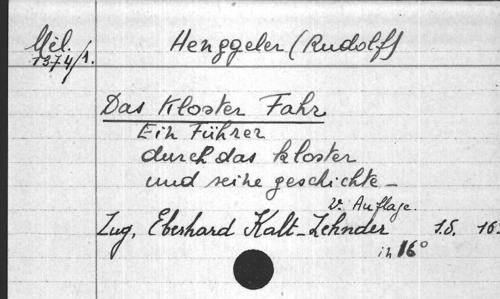 Mél.
1374/1.
Henggeler (Rudolf)
Das Kloster Fahr
Ein Führer
durch das kloster
und seine geschichte –
2e. Auflage.
Zug, Eberhard Kalt-Zehnder s.d. 16.
in 16°